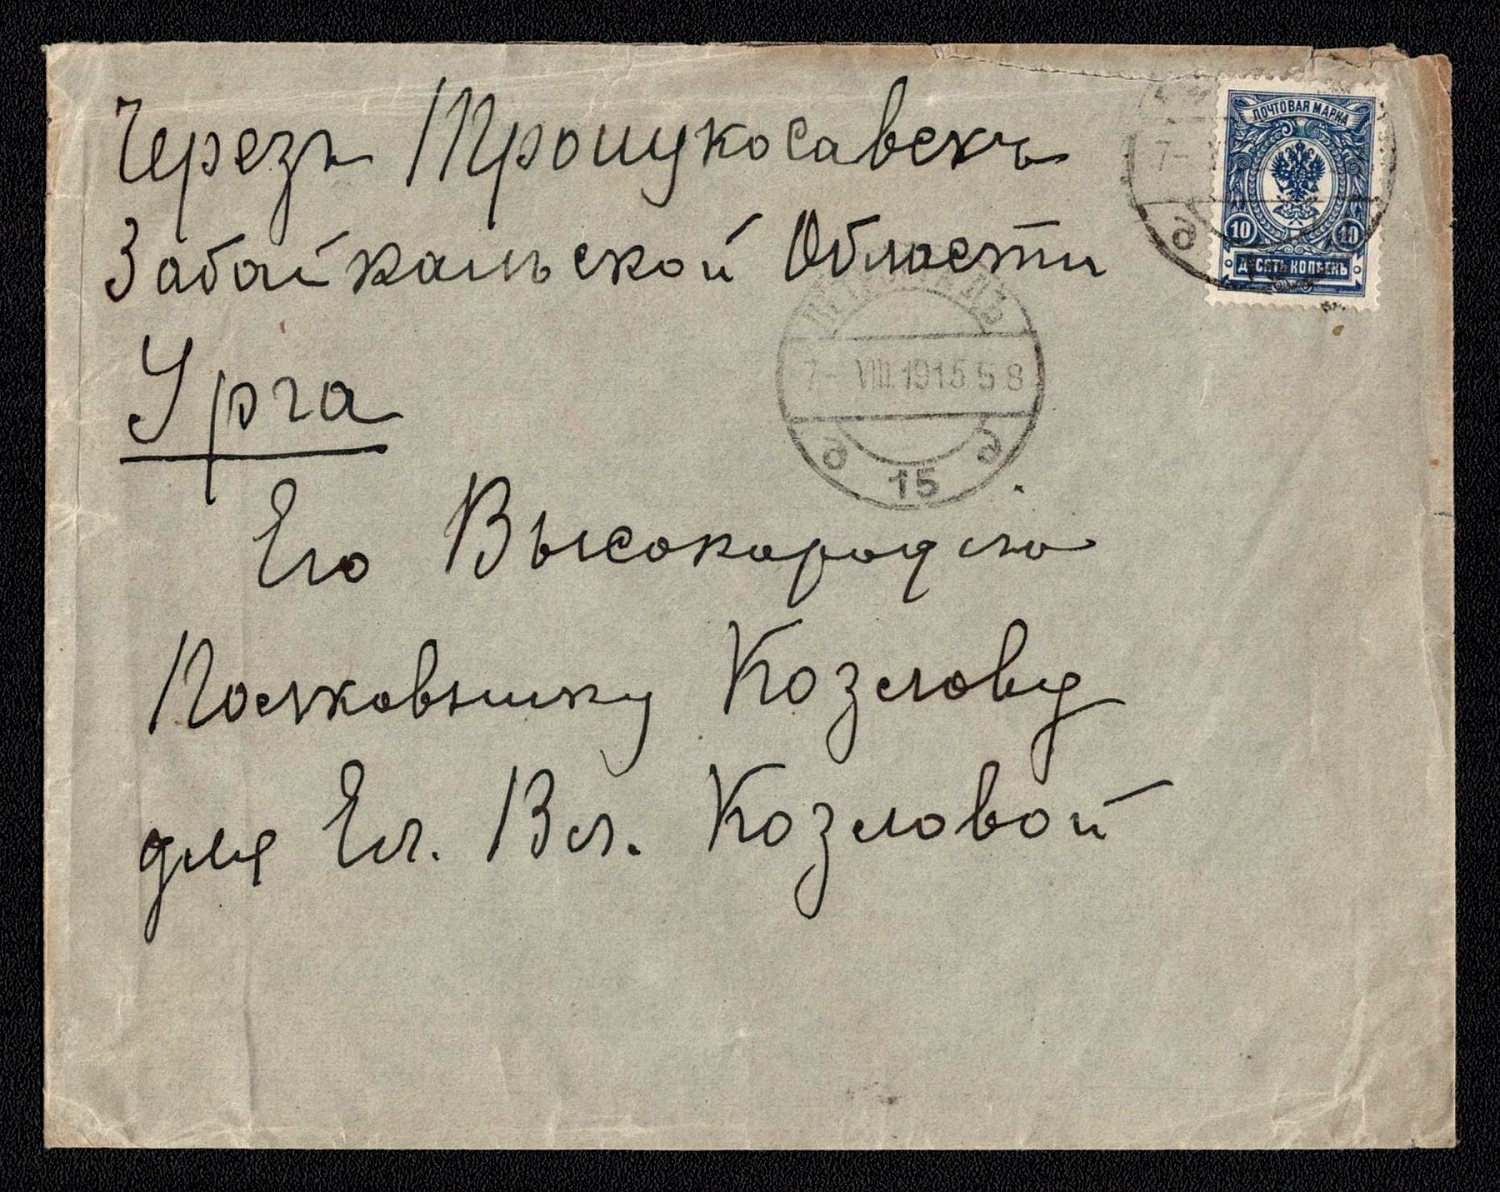 Черезъ Троицкосавскъ
Забайкальской Области
Урга
Его Высокородію
Полковнику Козлову
для Ел. Вл. Козловой
ПОЧТОВАЯ МАРКА
10 10
ДЕСЯТЬ КОПѢЕКЪ
ПЕТРОГРАДЪ
7- VIII.1915 5 8
д 15 д
7-
д